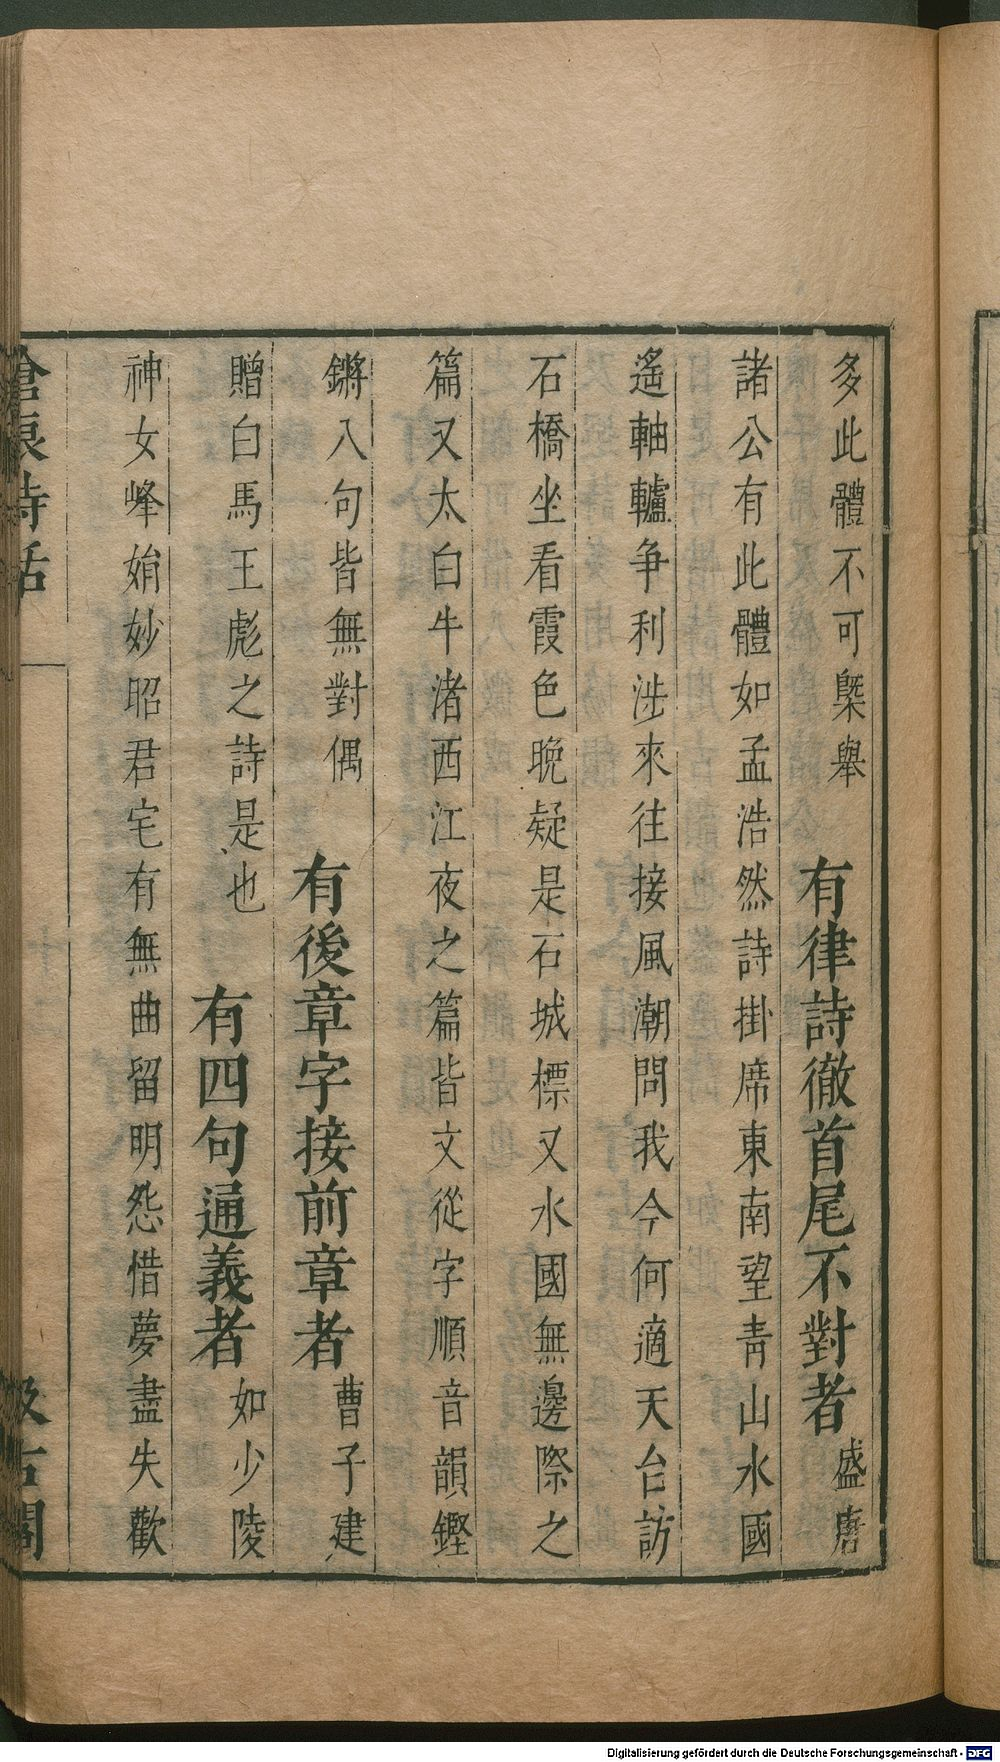 多此體不可槩舉　有律詩徹首尾不對者盛唐
諸公有此體如孟浩然詩掛席東南望青山水國
遙軸轤爭利涉來往接風潮問我今何適天台訪
石橋坐看霞色晚疑是石城標又水國無邊際之
篇又太白牛渚西江夜之篇皆文從字順音韻鏗
鏘八句皆無對偶　有後章字接前章者曹子建
贈白馬王彪之詩是也　有四句通義者如少陵
神女峰娟妙昭君宅有無曲留明怨惜夢盡失歡
滄浪詩話
汲古閣
Digitalisierung gefördert durch die Deutsche Forschungsgemeinschaft - DFG